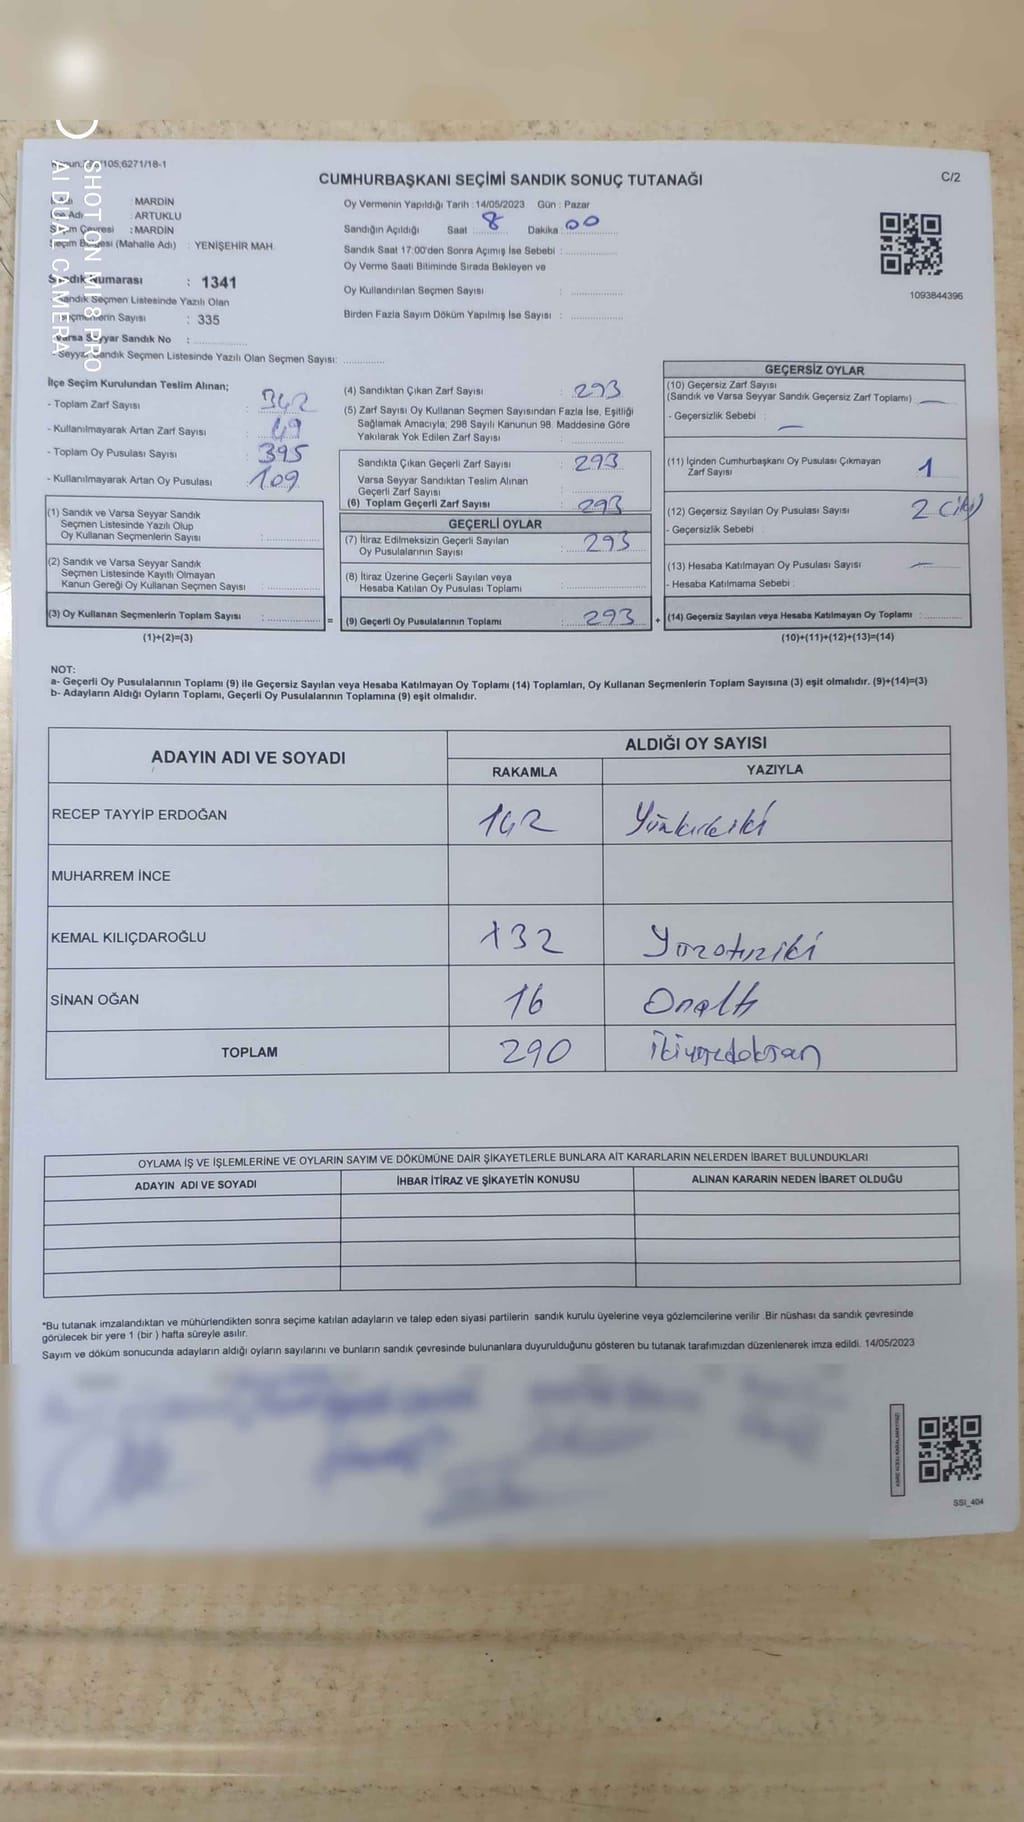 105,6271/18-1
CUMHURBAŞKANI SEÇİMİ SANDIK SONUÇ TUTANAĞI
C/2
: MARDİN
Adı : ARTUKLU
Seçim Çevresi : MARDİN
Seçim Bölgesi (Mahalle Adı) : YENİŞEHİR MAH.
Sandık Numarası : 1341
Sandık Seçmen Listesinde Yazılı Olan
Seçmenlerin Sayısı : 335
Varsa Seyyar Sandık No :
Seyyar Sandık Seçmen Listesinde Yazılı Olan Seçmen Sayısı:
Oy Vermenin Yapıldığı Tarih : 14/05/2023 Gün : Pazar
Sandığın Açıldığı Saat 8 Dakika : 00
Sandık Saat 17:00'den Sonra Açımış İse Sebebi :
Oy Verme Saati Bitiminde Sırada Bekleyen ve
Oy Kullandırılan Seçmen Sayısı :
Birden Fazla Sayım Döküm Yapılmış İse Sayısı :
1093844396
SHOT ON MI 8 PRO
AI DUAL CAMERA
İlçe Seçim Kurulundan Teslim Alınan;
- Toplam Zarf Sayısı : 342
- Kullanılmayarak Artan Zarf Sayısı : 49
- Toplam Oy Pusulası Sayısı : 395
- Kullanılmayarak Artan Oy Pusulası : 109
(1) Sandık ve Varsa Seyyar Sandık
Seçmen Listesinde Yazılı Olup
Oy Kullanan Seçmenlerin Sayısı :
(2) Sandık ve Varsa Seyyar Sandık
Seçmen Listesinde Kayıtlı Olmayan
Kanun Gereği Oy Kullanan Seçmen Sayısı :
(3) Oy Kullanan Seçmenlerin Toplam Sayısı : =
(1)+(2)=(3)
(4) Sandıktan Çıkan Zarf Sayısı : 293
(5) Zarf Sayısı Oy Kullanan Seçmen Sayısından Fazla İse, Eşitliği
Sağlamak Amacıyla; 298 Sayılı Kanunun 98. Maddesine Göre
Yakılarak Yok Edilen Zarf Sayısı :
Sandıkta Çıkan Geçerli Zarf Sayısı : 293
Varsa Seyyar Sandıktan Teslim Alınan
Geçerli Zarf Sayısı :
(6) Toplam Geçerli Zarf Sayısı : 293
GEÇERLİ OYLAR
(7) İtiraz Edilmeksizin Geçerli Sayılan
Oy Pusulalarının Sayısı : 293
(8) İtiraz Üzerine Geçerli Sayılan veya
Hesaba Katılan Oy Pusulası Toplamı :
(9) Geçerli Oy Pusulalarının Toplamı : 293 +
GEÇERSİZ OYLAR
(10) Geçersiz Zarf Sayısı
(Sandık ve Varsa Seyyar Sandık Geçersiz Zarf Toplamı) : —
- Geçersizlik Sebebi : —
(11) İçinden Cumhurbaşkanı Oy Pusulası Çıkmayan
Zarf Sayısı 1
(12) Geçersiz Sayılan Oy Pusulası Sayısı 2 (iki)
- Geçersizlik Sebebi :
(13) Hesaba Katılmayan Oy Pusulası Sayısı : —
- Hesaba Katılmama Sebebi :
(14) Geçersiz Sayılan veya Hesaba Katılmayan Oy Toplamı :
(10)+(11)+(12)+(13)=(14)
NOT:
a- Geçerli Oy Pusulalarının Toplamı (9) ile Geçersiz Sayılan veya Hesaba Katılmayan Oy Toplamı (14) Toplamları, Oy Kullanan Seçmenlerin Toplam Sayısına (3) eşit olmalıdır. (9)+(14)=(3)
b- Adayların Aldığı Oyların Toplamı, Geçerli Oy Pusulalarının Toplamına (9) eşit olmalıdır.
ADAYIN ADI VE SOYADI
ALDIĞI OY SAYISI
RAKAMLA YAZIYLA
RECEP TAYYİP ERDOĞAN 142 Yüzkırkiki
MUHARREM İNCE
KEMAL KILIÇDAROĞLU 132 Yüzotuziki
SİNAN OĞAN 16 Onaltı
TOPLAM 290 İkiyüzdoksan
OYLAMA İŞ VE İŞLEMLERİNE VE OYLARIN SAYIM VE DÖKÜMÜNE DAİR ŞİKAYETLERLE BUNLARA AİT KARARLARIN NELERDEN İBARET BULUNDUKLARI
ADAYIN ADI VE SOYADI İHBAR İTİRAZ VE ŞİKAYETİN KONUSU ALINAN KARARIN NEDEN İBARET OLDUĞU
*Bu tutanak imzalandıktan ve mühürlendikten sonra seçime katılan adayların ve talep eden siyasi partilerin sandık kurulu üyelerine veya gözlemcilerine verilir. Bir nüshası da sandık çevresinde
görülecek bir yere 1 (bir) hafta süreyle asılır.
Sayım ve döküm sonucunda adayların aldığı oyların sayılarını ve bunların sandık çevresinde bulunanlara duyurulduğunu gösteren bu tutanak tarafımızdan düzenlenerek imza edildi. 14/05/2023
SSI_404